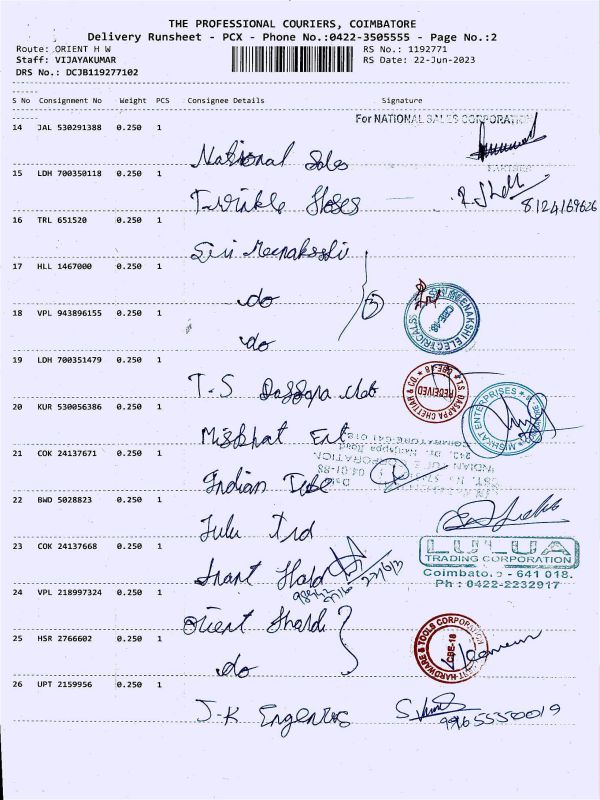 THE PROFESSIONAL COURIERS, COIMBATORE
Delivery Runsheet - PCX - Phone No.:0422-3505555 - Page No.:2
Route: ORIENT H W RS No.: 1192771
Staff: VIJAYAKUMAR RS Date: 22-Jun-2023
DRS No.: DCJB119277102
S No Consignment No Weight PCS Consignee Details Signature
For NATIONAL SALES CORPORATION
14 JAL 530291388 0.250 1
National Sales
PARTNER
15 LDH 700350118 0.250 1
Twinkle Hoses
8124169626
16 TRL 651520 0.250 1
Sri Meenakshi
17 HLL 1467000 0.250 1
do
MEENAKSHI ELECTRICALS
18 VPL 943896155 0.250 1
do
19 LDH 700351479 0.250 1
T.S. DASAPPA CHETTIAR & CO. RECEIVED
T-S Dassapa
20 KUR 530056386 0.250 1
MISHKAT ENTERPRISES
Mishkat Ent
21 COK 24137671 0.250 1
INDIAN TUBE CORPORATION
Indian Tube
22 BWD 5028823 0.250 1
Lulu Trd
23 COK 24137668 0.250 1
LULUA
TRADING CORPORATION
Coimbatore - 641 018.
Ph : 0422-2232917
24 VPL 218997324 0.250 1
Orient Hard
25 HSR 2766602 0.250 1
HARDWARE & TOOLS CORPORATION CBE-18
do
26 UPT 2159956 0.250 1
J-K